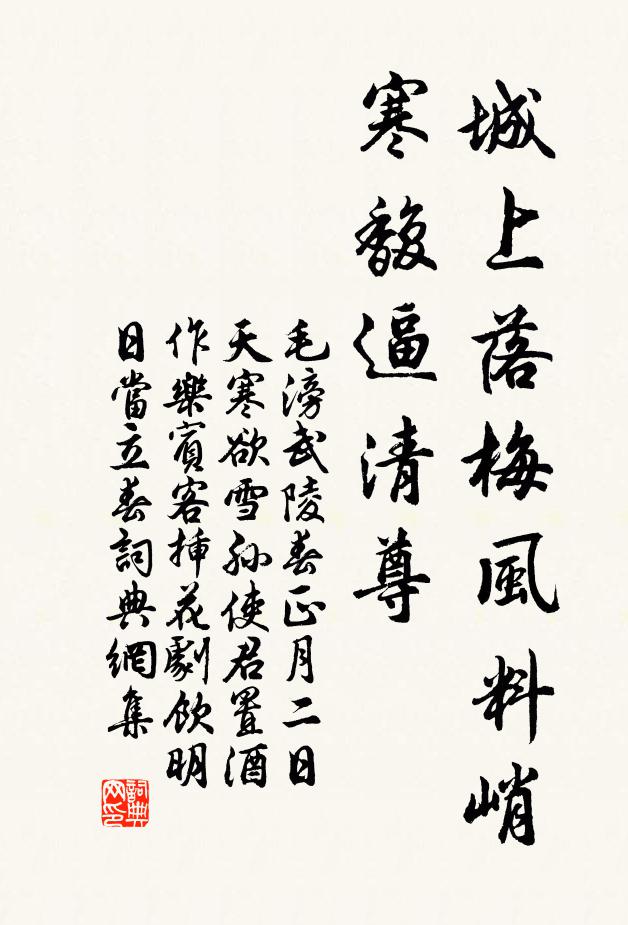 城上落梅風料峭
寒馥逼清尊
毛滂武陵春正月二日
天寒欲雪孙使君置酒
作樂賓客插花劇飲明
日當立春詞典網集
詞典网印